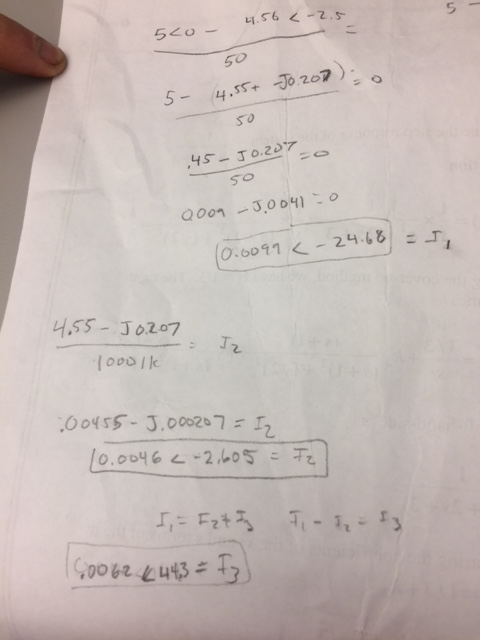 5<0 - 4.56 < -2.5 =
50
5 -
5 - (4.55 + -J0.207) = 0
50
.45 - J0.207 = 0
50
0.009 - J.0041 = 0
0.0099 < -24.68 = I1
4.55 - J0.207 = I2
1000 1k
.00455 - J.000207 = I2
0.0046 < -2.605 = I2
I1 = I2 + I3 I1 - I2 = I3
.0062 < 44.3 = I3